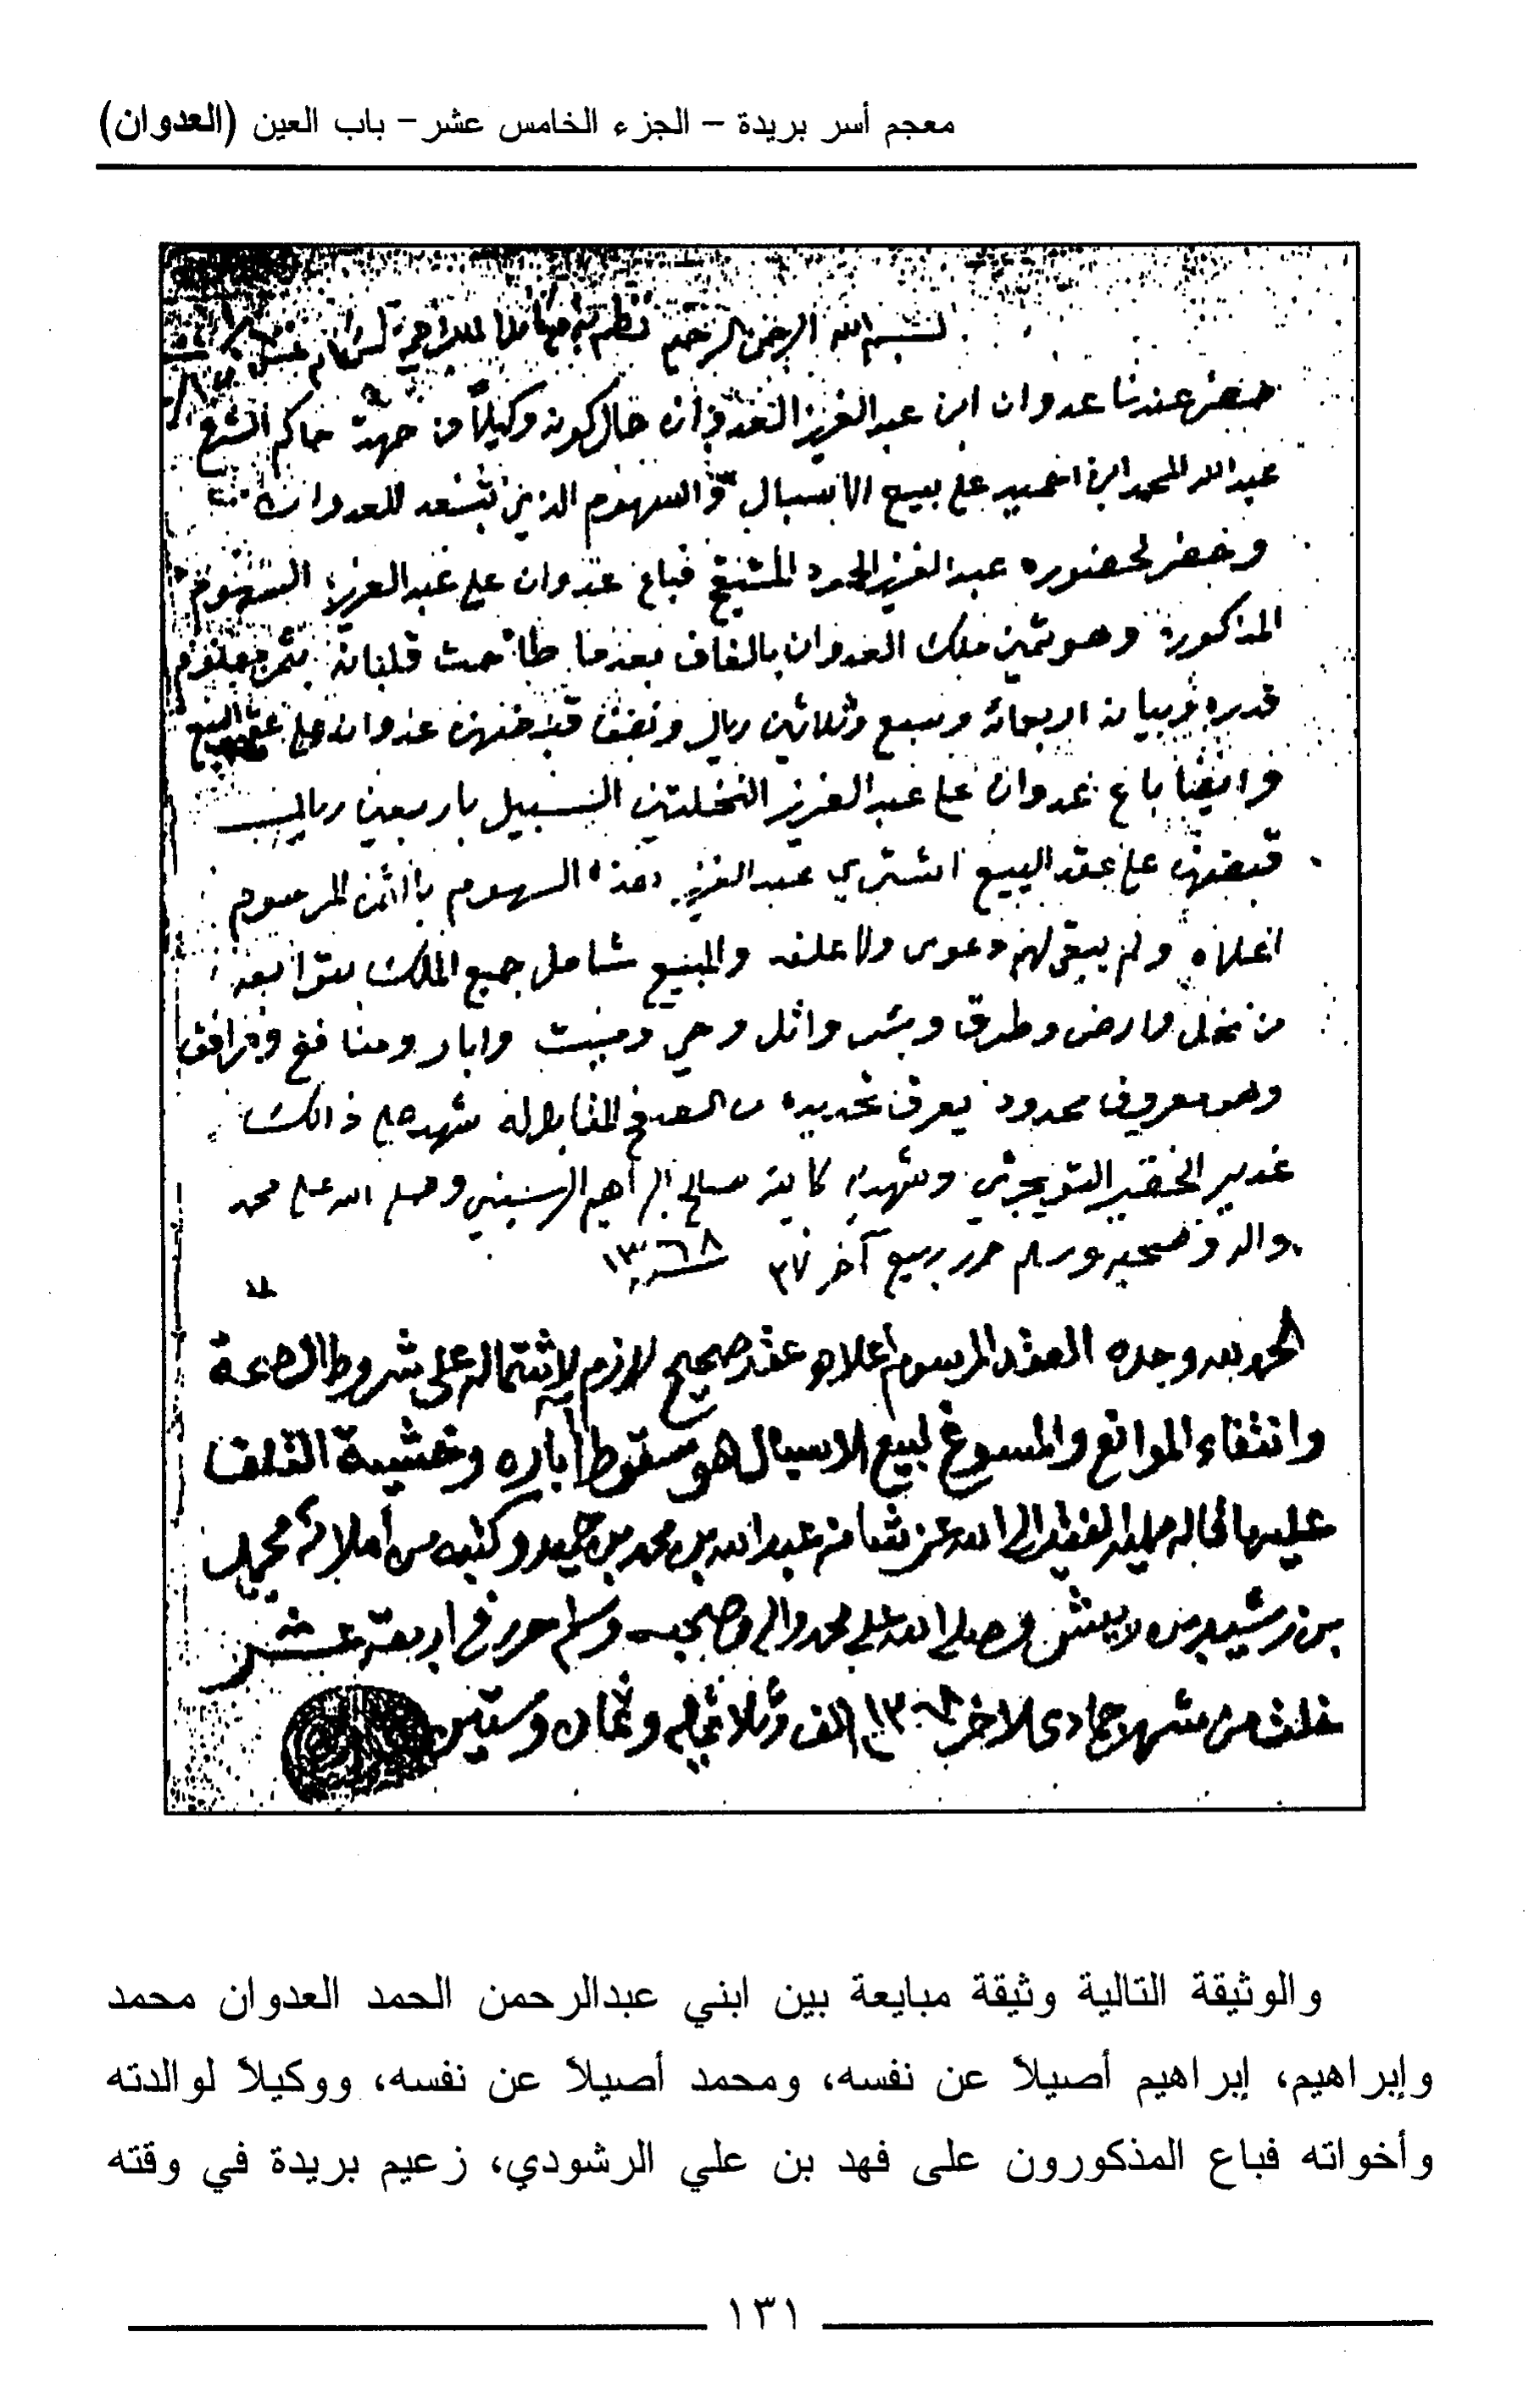 معجم أسر بريدة – الجزء الخامس عشر – باب العين (العدوان)
بسم الله الرحمن الرحيم
حضر عندنا عدوان ابن عبدالعزيز العدوان حال كونه وكيلاً من جهة حاكم الشرع
عبدالله المحمد ابن احميد على بيع الاسبال والسهوم الذين للعدوان
وحضر لحضوره عبدالعزيز الحمود المشيقح فباع عدوان على عبدالعزيز السهوم
المذكورة وهو ثمين ملك العدوان بعدما طاحت قلبانه بثمن معلوم
قدره وبيانه اربعمائة وسبع وثلاثين ريال ونصف قبضهن عدوان
وايضا باع عدوان على عبدالعزيز النخلتين السبيل باربعين ريال
قبضهن على عقد البيع اشترى عبدالعزيز هذه السهوم بالثمن المرسوم
اعلاه ولم يبقى لهم دعوى ولا علقه والمبيع شامل جميع الملك بتوابعه
من نخل وارض وطرق وبئر واثل وحي وميت وابار ومنافع ومرافق
وهو معروف محدود يعرف تحديده من شهد على ذالك
غدير الخضير التويجري وشهد به كاتبه صالح ابراهيم الرسيني وصلى الله على محمد
واله وصحبه وسلم حرر ربيع آخر ٢٧ ١٣٦٨
الحمد لله وحده العقد المرسوم أعلاه عقد صحيح لازم لاشتماله على شروط الصحة
وانتفاء الموانع والمسوغ لبيع الاسبال هو سقوط آباره وخشية التلف
عليها قاله ممليه الفقير إلى الله عز شأنه عبدالله بن محمد بن حميد وكتبه من أملائه محمد
بن رشيد وصلى الله على محمد واله وصحبه وسلم حرر في اربعة عشر
خلت من شهر جمادى الاخر ١٣٦٨ الف وثلاثمائة وثمان وستين
والوثيقة التالية وثيقة مبايعة بين ابني عبدالرحمن الحمد العدوان محمد
وإبراهيم، إبراهيم أصيلاً عن نفسه، ومحمد أصيلاً عن نفسه، ووكيلاً لوالدته
وأخواته فباع المذكورون على فهد بن علي الرشودي، زعيم بريدة في وقته
١٣١